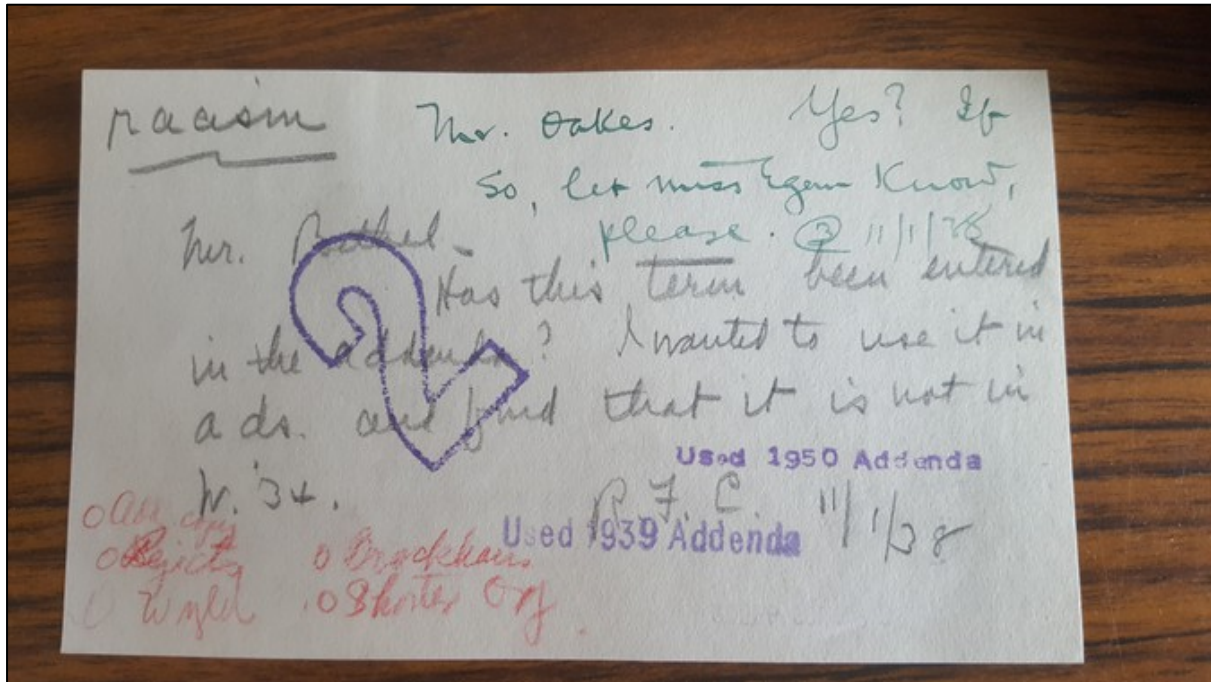 racism
Mr. Oakes. Yes? If
so, let Miss Egan know,
please. @ 11/1/38
Mr. Bethel_
Has this term been entered
in the addenda? I wanted to use it in
ads. and find that it is not in
W. '34.
R. F. C. 11/1/38
Used 1950 Addenda
Used 1939 Addenda
o Rejects o Brockhaus
o Wyld o Shorter Oxf.